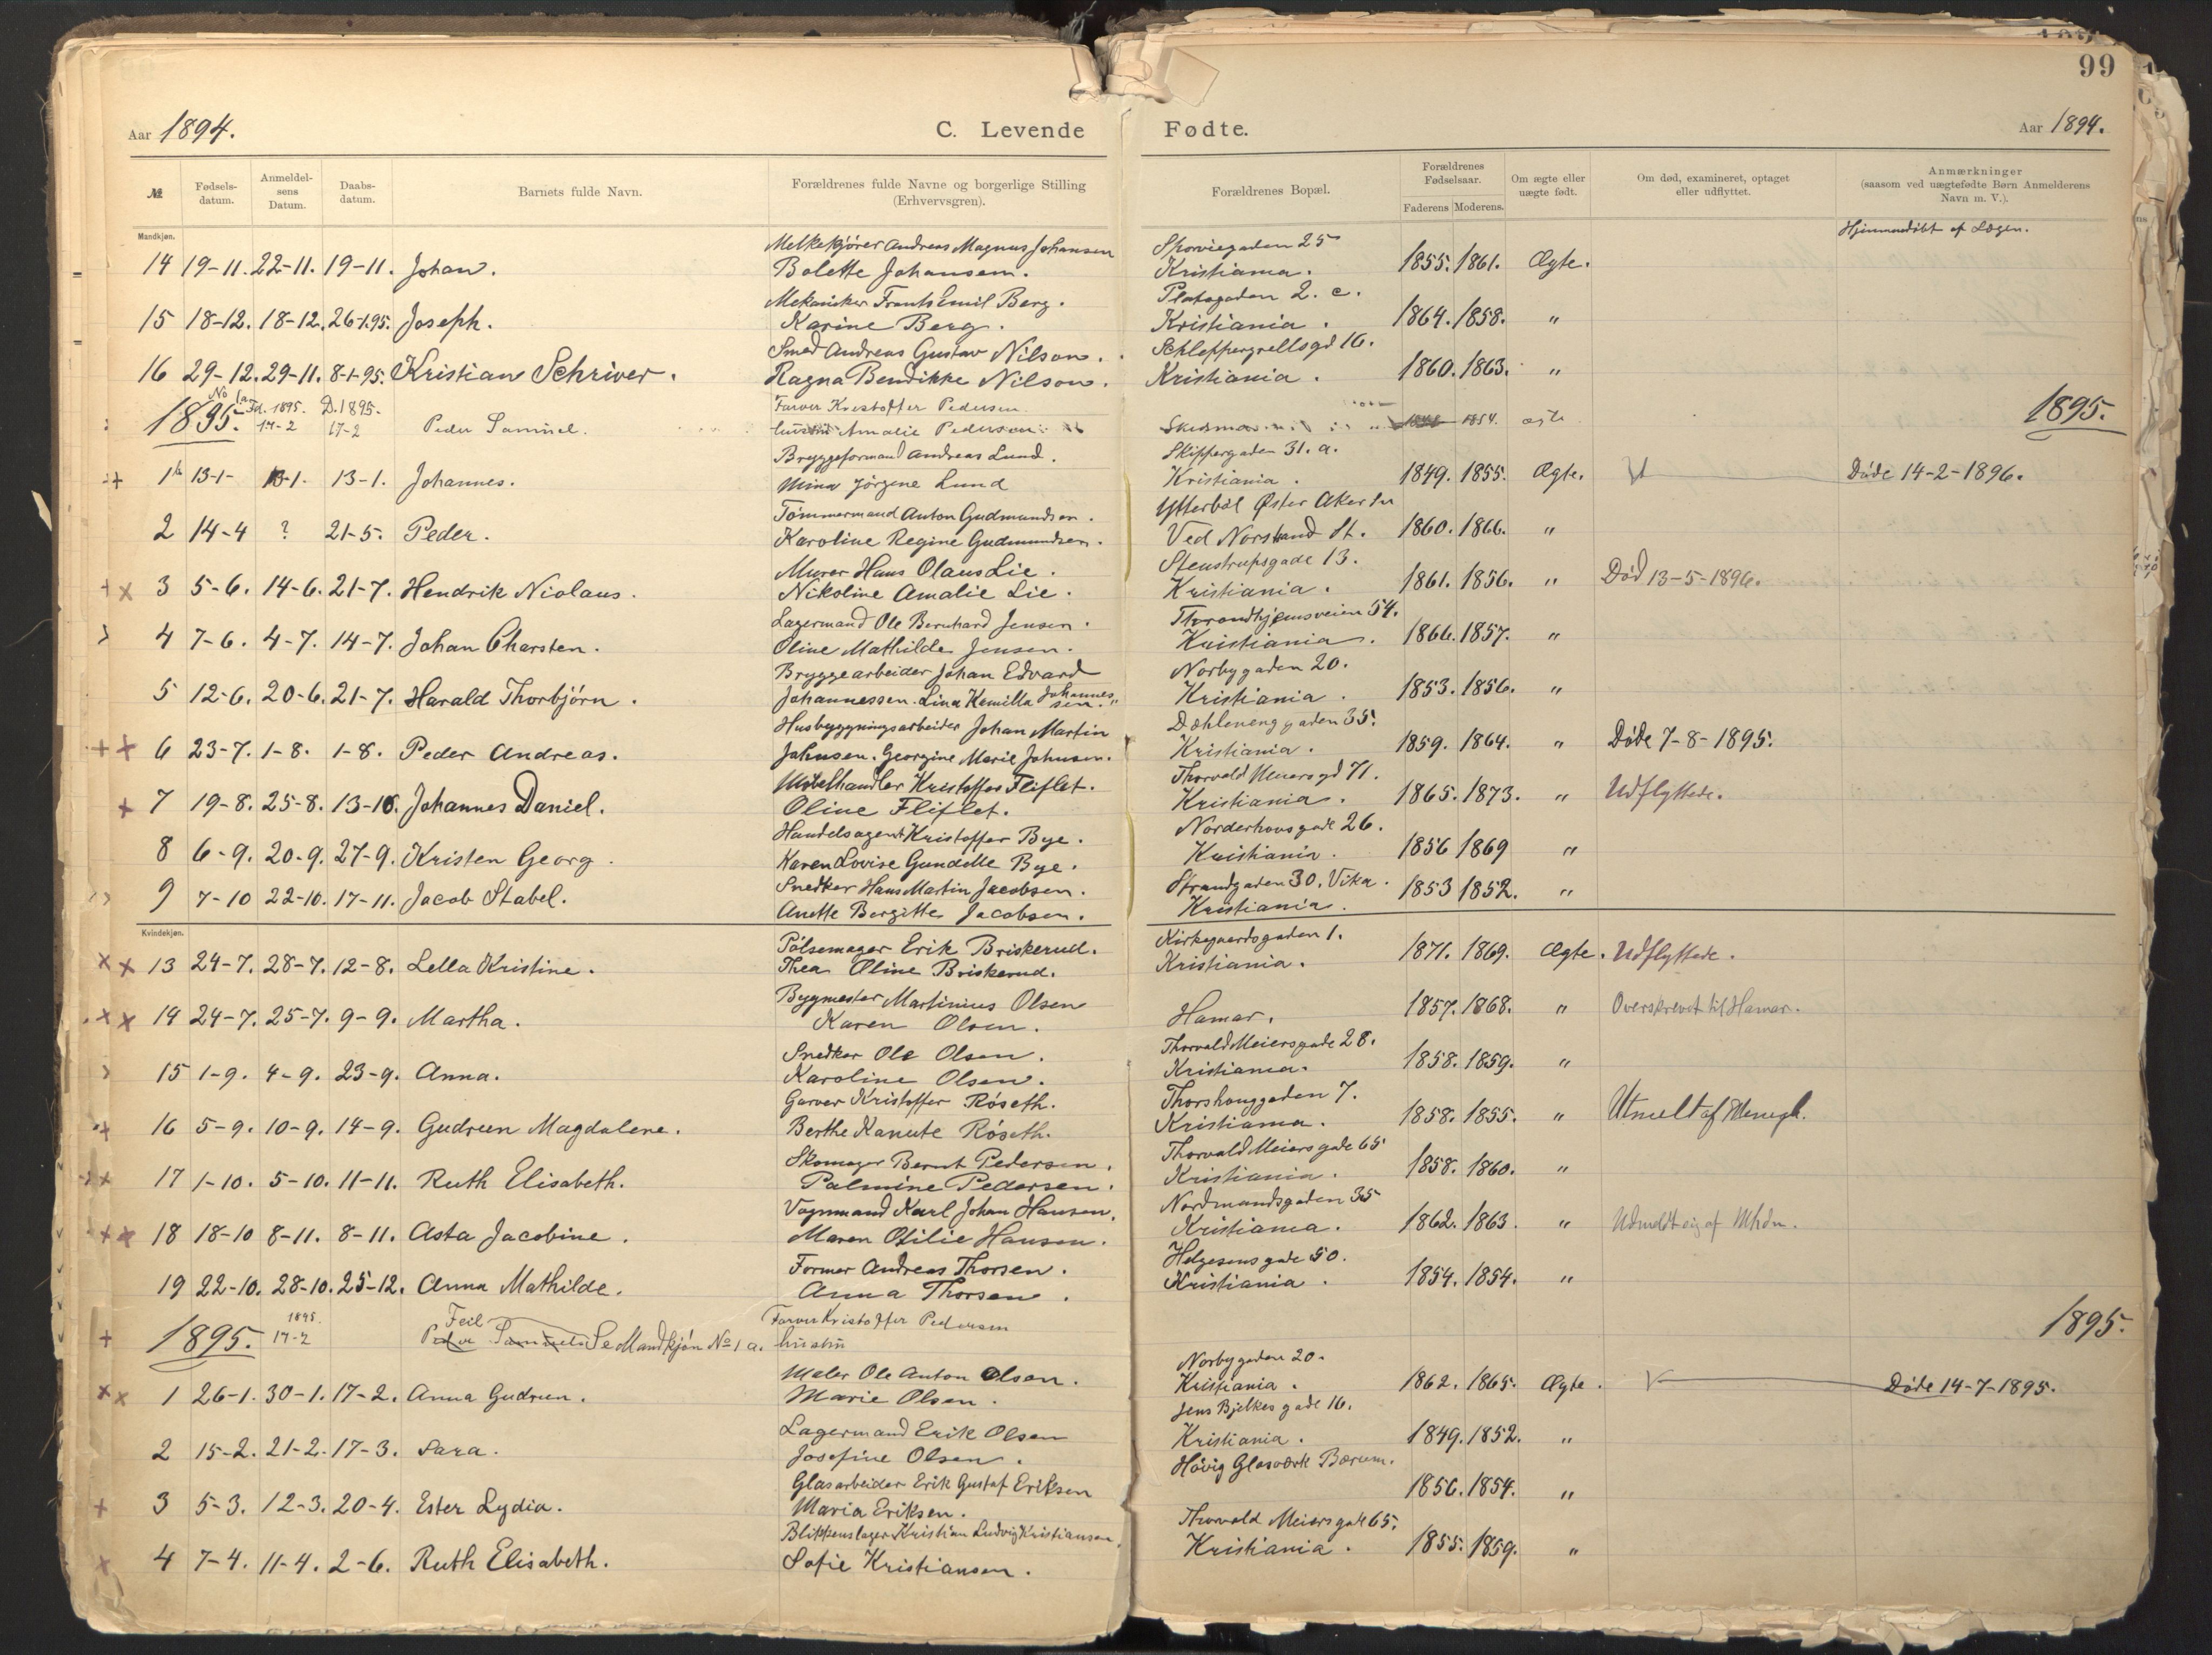 99
Aar 1894. C. Levende Fødte. Aar 1894.
№ Fødsels-datum. Anmeldel-sens Datum. Daabs-datum. Barnets fulde Navn. Forældrenes fulde Navne og borgerlige Stilling (Erhvervsgren). Forældrenes Bopæl. Forældrenes Fødselsaar. Faderens Moderens. Om ægte eller uægte født. Om død, examineret, optaget eller udflyttet. Anmærkninger (saasom ved uægtefødte Børn Anmelderens Navn m. V.).
Mandkjøn.
Melkekjører Andreas Magnus Johansen Hjemmedøbt af Lægen.
14 19-11. 22-11. 19-11. Johan. Bolette Johansen. Kristiania. 1855. 1861. Ægte.
Mekaniker Frants Emil Berg. Platougaden 2. c.
15 18-12. 18-12. 26-1.95. Joseph. Karine Berg. Kristiania. 1864. 1858. "
Smed Andreas Gustav Nilson. Schleppegrellsgd 16.
16 29-12. 29-11. 8-1-95. Kristian Schriver. Ragna Bendikke Nilson. Kristiania. 1860. 1863. "
No 1a Fd. 1895. D. 1895. Farver Kristoffer Pedersen
1895. 17-2 17-2 Peder Samuel. hustru Amalie Pedersen 1854. ægte 1895.
Bryggeformand Andreas Lund. Skippergaden 31. a.
1b 13-1- 13-1. 13-1. Johannes. Mina Jørgine Lund Kristiania. 1849. 1855. Ægte. Døde 14-2-1896.
Tømmermand Anton Gudmundsen. Ytterbøl Østre Aker
2 14-4 ? 21-5. Peder. Karoline Regine Gudmundsen. Ved Norstrand St. 1860. 1866. "
Murer Hans Olaus Lie. Stenstrupsgade 13.
3 5-6. 14-6. 21-7. Hendrik Niolaus. Nikoline Amalie Lie. Kristiania. 1861. 1856. " Død 13-5-1896.
Lagermand Ole Bernhard Jensen. Throndhjemsveien 54.
4 7-6. 4-7. 14-7. Johan Charsten. Oline Mathilde Jensen. Kristiania. 1866. 1857. "
Bryggearbeider Johan Edvard Norbygaden 20.
5 12-6. 20-6. 21-7. Harald Thorbjørn. Johannessen. Lina Kamilla Johannessen. Kristiania. 1853. 1856. "
Husbygningsarbeider Johan Martin Dæhleneng gaden 35.
6 23-7. 1-8. 1-8. Peder Andreas. Johnsen. Georgine Marie Johnsen. Kristiania. 1859. 1864. " Døde 7-8-1895.
Møbelhandler Kristoffer Fliflet. Thorvald Meiersgd 71.
7 19-8. 25-8. 13-10. Johannes Daniel. Oline Fliflet. Kristiania. 1865. 1873. " Udflyttede.
Handelsagent Kristoffer Bye. Norderhovsgade 26.
8 6-9. 20-9. 27-9. Kristen Georg. Karen Lovise Gundelle Bye. Kristiania. 1856 1869 "
Snedker Hans Martin Jacobsen. Strandgaden 30, Vika.
9 7-10 22-10. 17-11. Jacob Stabel. Anette Bergitte Jacobsen. Kristiania. 1853 1852. "
Kvindekjøn.
Pølsemager Erik Briskerud. Kirkegaardsgaden 1.
13 24-7. 28-7. 12-8. Lella Kristine. Thea Oline Briskerud. Kristiania. 1871. 1869. Ægte. Udflyttede.
Bygmester Martinius Olsen
14 24-7. 25-7. 9-9. Martha. Karen Olsen. Hamar. 1857. 1868. " Overskrevet til Hamar.
Snedker Ole Olsen. Thorvald Meiersgade 28.
15 1-9. 4-9. 23-9. Anna. Karoline Olsen. Kristiania. 1858. 1859. "
Garver Kristoffer Røseth. Thorshouggaden 7.
16 5-9. 10-9. 14-9. Gudrun Magdalene. Berthe Kanute Røseth. Kristiania. 1858. 1855. " Utmelt af Menigh.
Skomager Bernt Pedersen. Thorvald Meiersgade 65
17 1-10. 5-10. 11-11. Ruth Elisabeth. Palmine Pedersen. Kristiania. 1858. 1860. "
Vognmand Karl Johan Hansen. Nordmandsgaden 35
18 18-10 8-11. 8-11. Asta Jacobine. Maren Otilie Hansen. Kristiania. 1862. 1863. " Udmeldt sig af Mhdn.
Former Andreas Thorsen. Helgesensgade 50.
19 22-10. 28-10. 25-12. Anna Mathilde. Anna Thorsen. Kristiania. 1854. 1854. "
1895. Feil Farver Kristoffer Pedersen
1895. 17-2 Peder Samuel Se Mandkjøn No 1 a. hustru 1895.
Maler Ole Anton Olsen. Norbygaden 20.
1 26-1. 30-1. 17-2. Anna Gudrun. Marie Olsen. Kristiania. 1862. 1865. Ægte. Døde 14-7-1895.
Lagermand Erik Olsen Jens Bjelkes gade 16.
2 15-2. 21-2. 17-3. Sara. Josefine Olsen. Kristiania. 1849. 1852. "
Glasarbeider Erik Gustaf Eriksen Høvig Glasværk Bærum.
3 5-3. 12-3. 20-4. Ester Lydia. Maria Eriksen. 1856. 1854. "
Blikkenslager Kristian Ludvig Kristiansen. Thorvald Meiersgade 65.
4 7-4. 11-4. 2-6. Ruth Elisabeth. Sofie Kristiansen. Kristiania. 1855. 1859. "